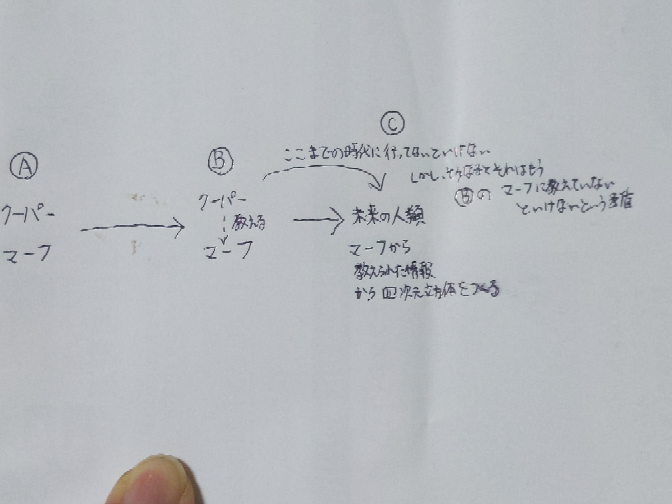 Ⓐ
クーパー
マーフ
Ⓑ
クーパー
教える
マーフ
Ⓒ
ここまでの時代に行ってないといけない
しかし、そうなるとそれはもう
Ⓑの マーフに教えていない
といけないという矛盾
未来の人類
マーフから
教えられた情報
から四次元立方体をつくる